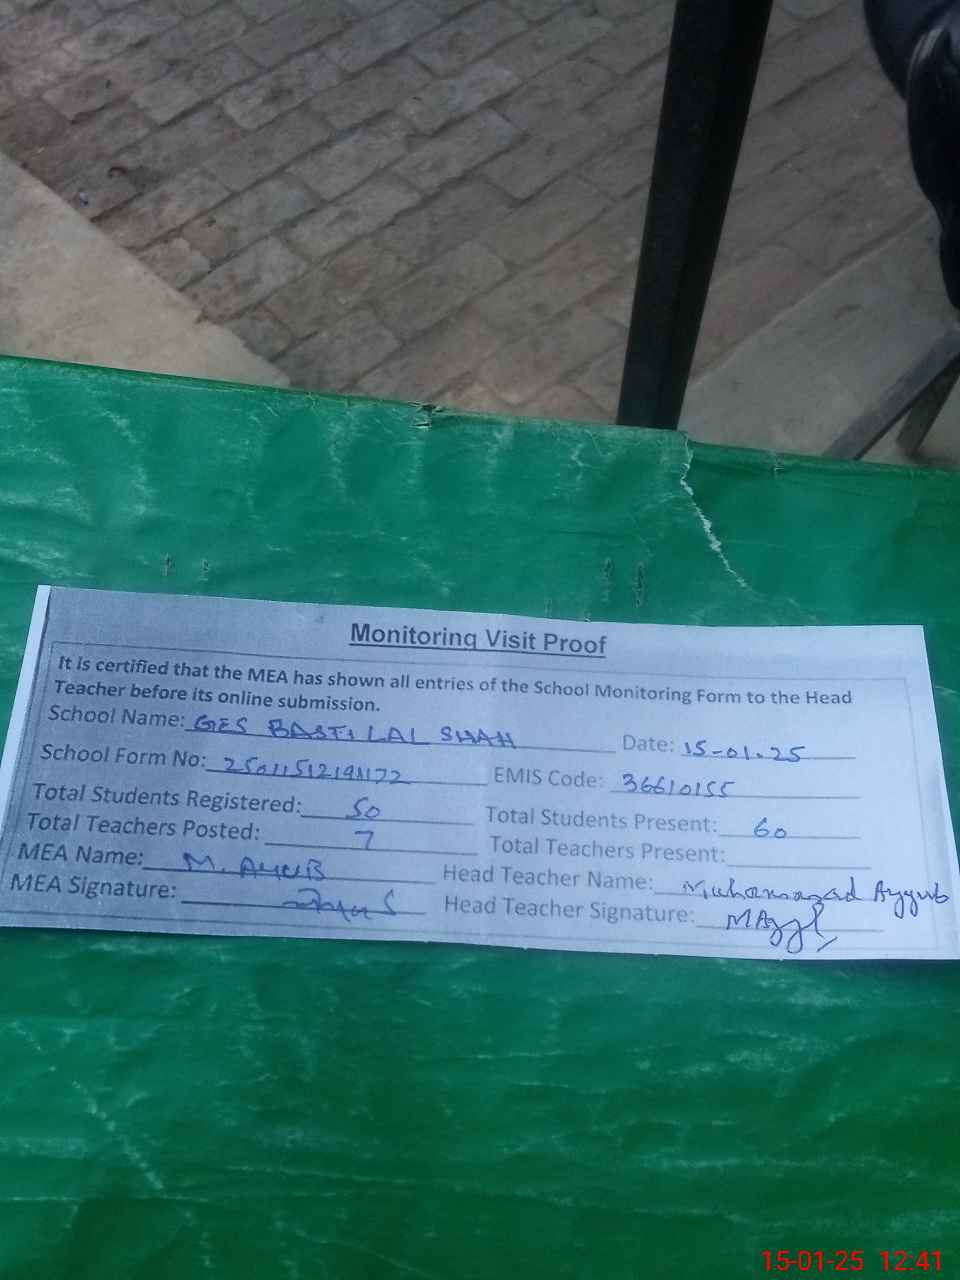 Monitoring Visit Proof
It is certified that the MEA has shown all entries of the School Monitoring Form to the Head
Teacher before its online submission.
School Name: GES BASTI LAL SHAH Date: 15-01-25
School Form No: EMIS Code: 36610155
Total Students Registered: 50 Total Students Present: 60
Total Teachers Posted: 7 Total Teachers Present:
MEA Name: M. AYUB Head Teacher Name: Muhammad Ayyub
MEA Signature: Head Teacher Signature:
15-01-25 12:41